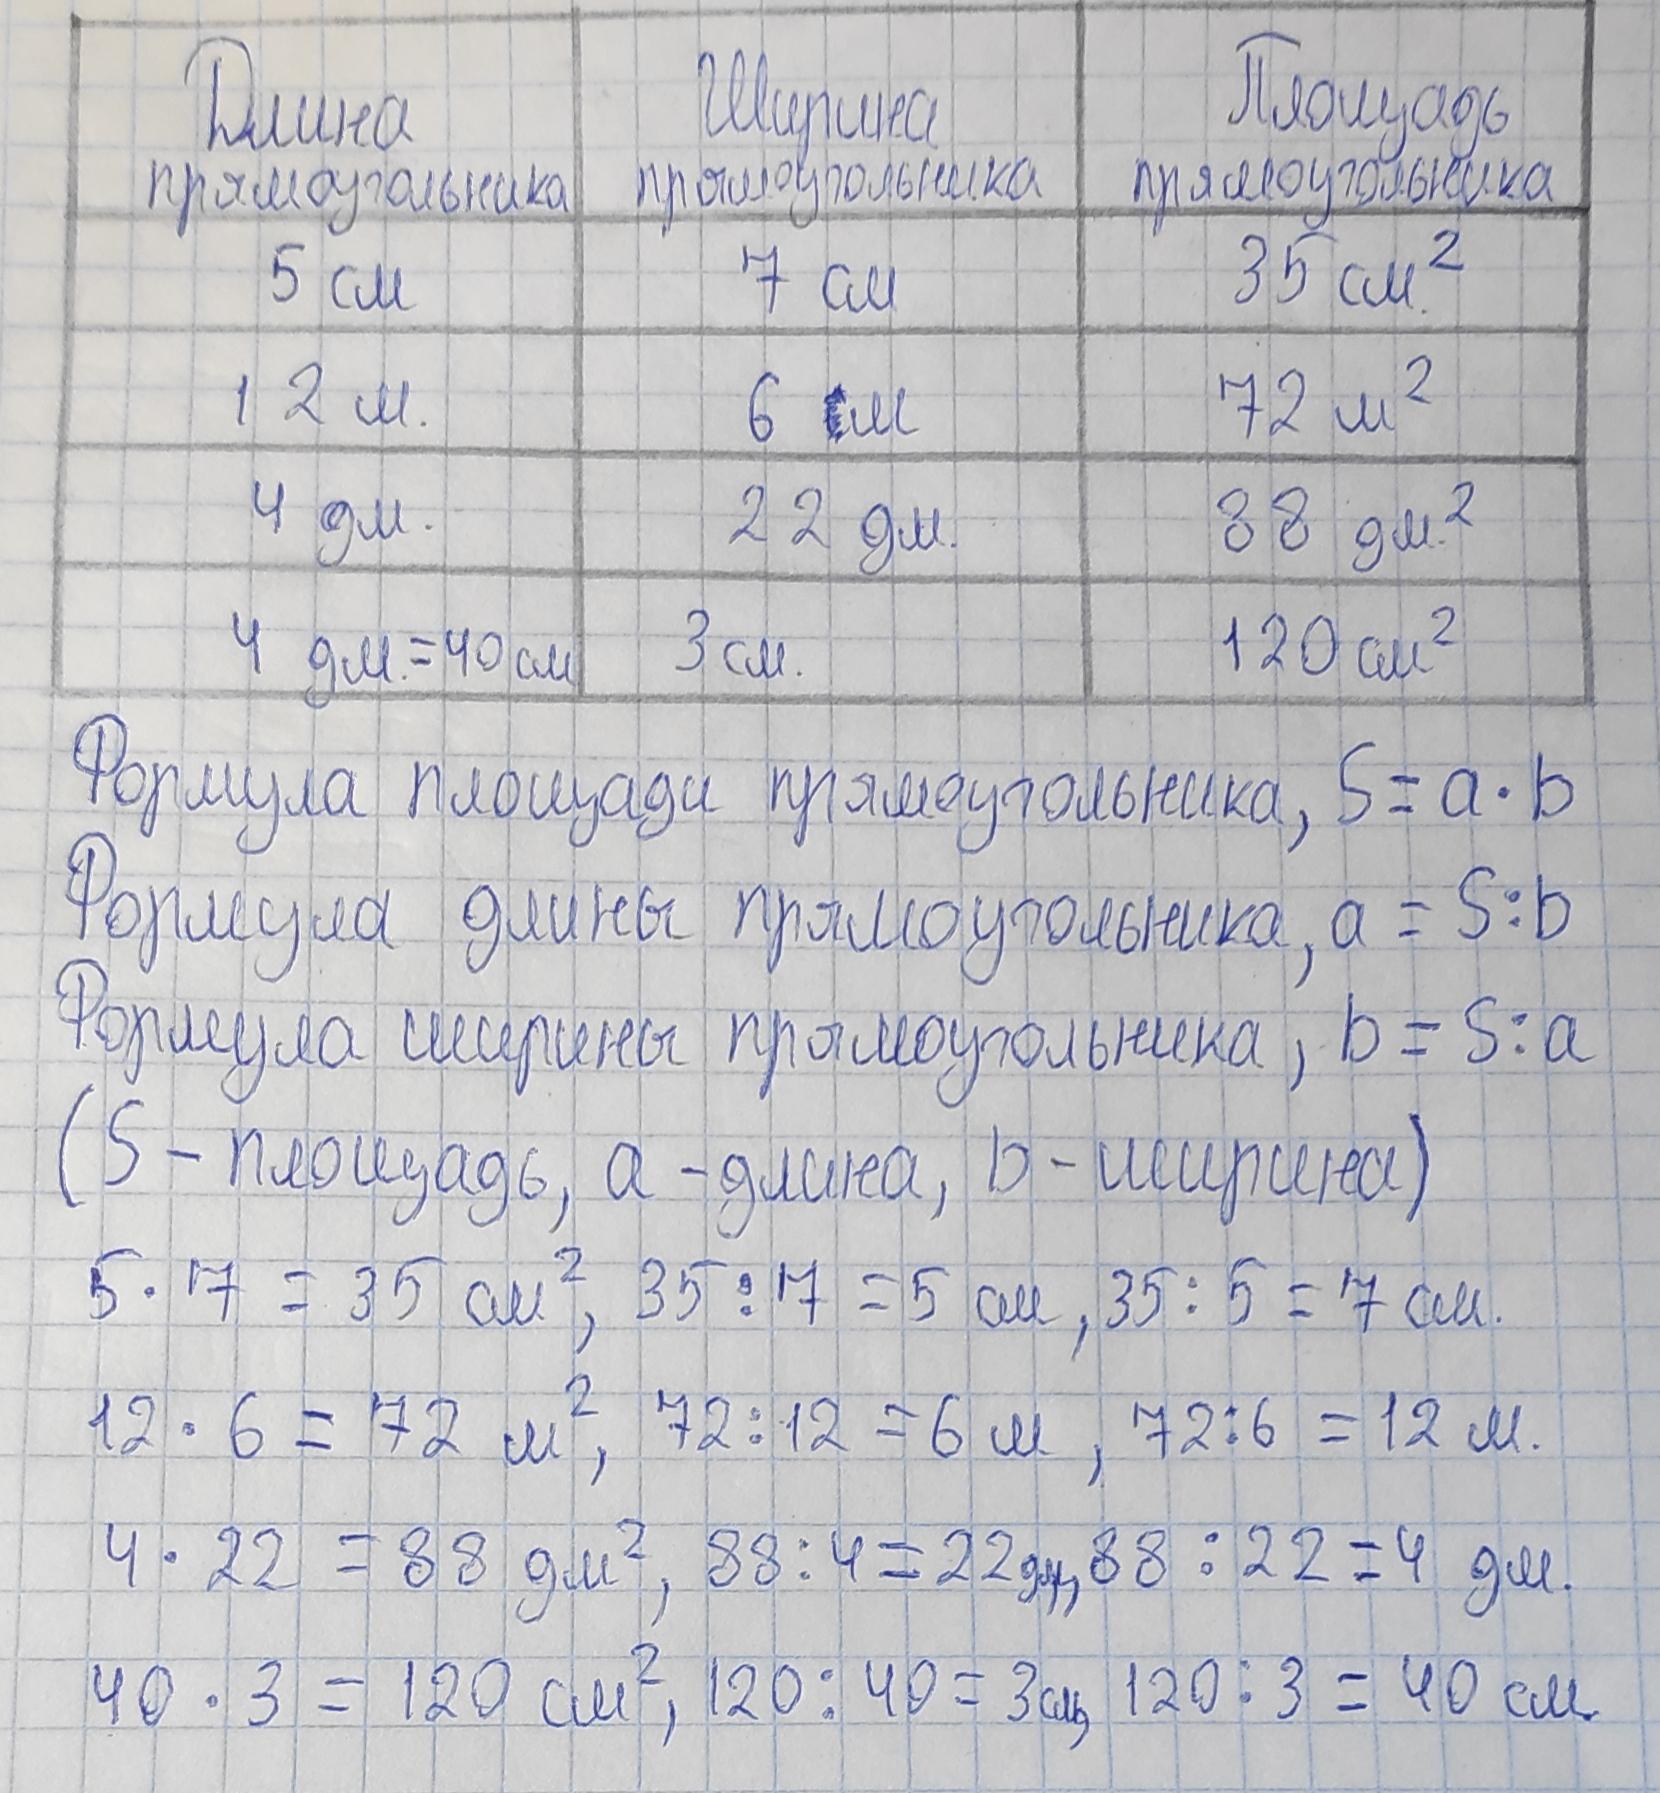 Длина Ширина Площадь
прямоугольника прямоугольника прямоугольника
5 см 7 см 35 см²
12 м. 6 м 72 м²
4 дм. 22 дм. 88 дм.²
4 дм.=40см 3см. 120см²
Формула площади прямоугольника, S=a·b
Формула длины прямоугольника, a=S:b
Формула ширины прямоугольника, b=S:a
(S-площадь, a-длина, b-ширина)
5·7=35 см², 35:7=5 см, 35:5=7см.
12·6=72 м², 72:12=6 м, 72:6=12 м.
4·22=88 дм², 88:4=22дм, 88:22=4 дм.
40·3=120 см², 120:40=3см, 120:3=40 см.